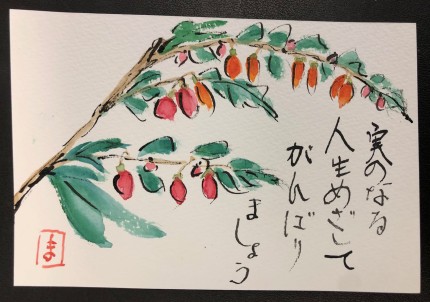 実のなる
人生めざして
がんばり
ましょう
ま